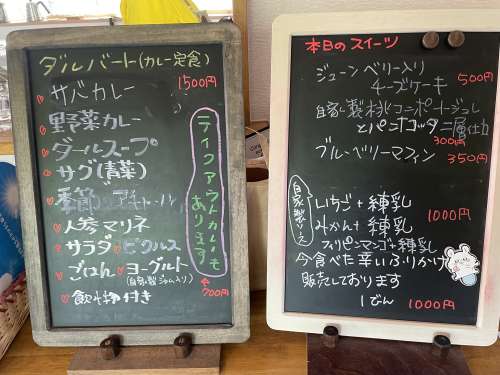 ダルバート(カレー定食)
1500円
サバカレー
野菜カレー
ダールスープ
サグ(青菜)
季節のアチャール
人参マリネ
サラダ ピクルス
ごはん ヨーグルト
(自家製ジャム入り)
飲物付き
テイクアウトカレーも
あります
700円
本日のスイーツ
ジューンベリー入り
チーズケーキ
500円
自家製
とパンナコッタ 二層仕立
300円
ブルーベリーマフィン
350円
いちご+練乳
みかん+練乳
1000円
フィリピンマンゴ+練乳
今食べた辛いふりかけ
販売しております
1びん 1000円